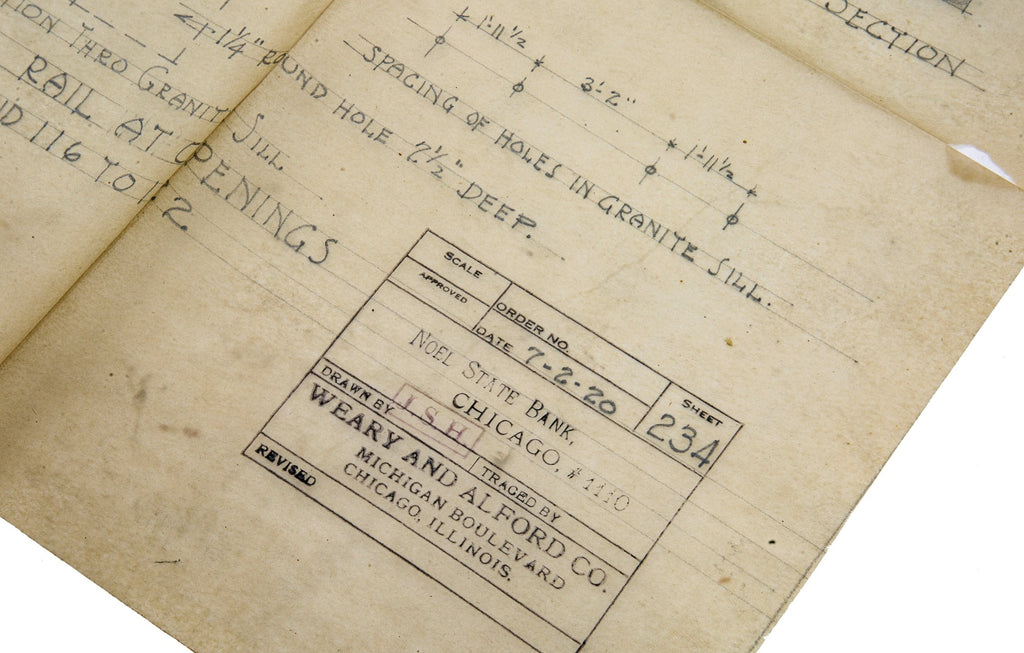 SECTION
1'-11½ 3'-2" 1'-11½
SPACING OF HOLES IN GRANITE SILL.
1¼" ROUND HOLE 7½" DEEP.
THRO GRANIT SILL.
RAIL AT OPENINGS
116 TO
2
SCALE
APPROVED
ORDER NO.
DATE 7-2-20
SHEET
234
NOEL STATE BANK,
CHICAGO, #1110
DRAWN BY I S H
TRACED BY
WEARY AND ALFORD CO.
MICHIGAN BOULEVARD
CHICAGO, ILLINOIS.
REVISED